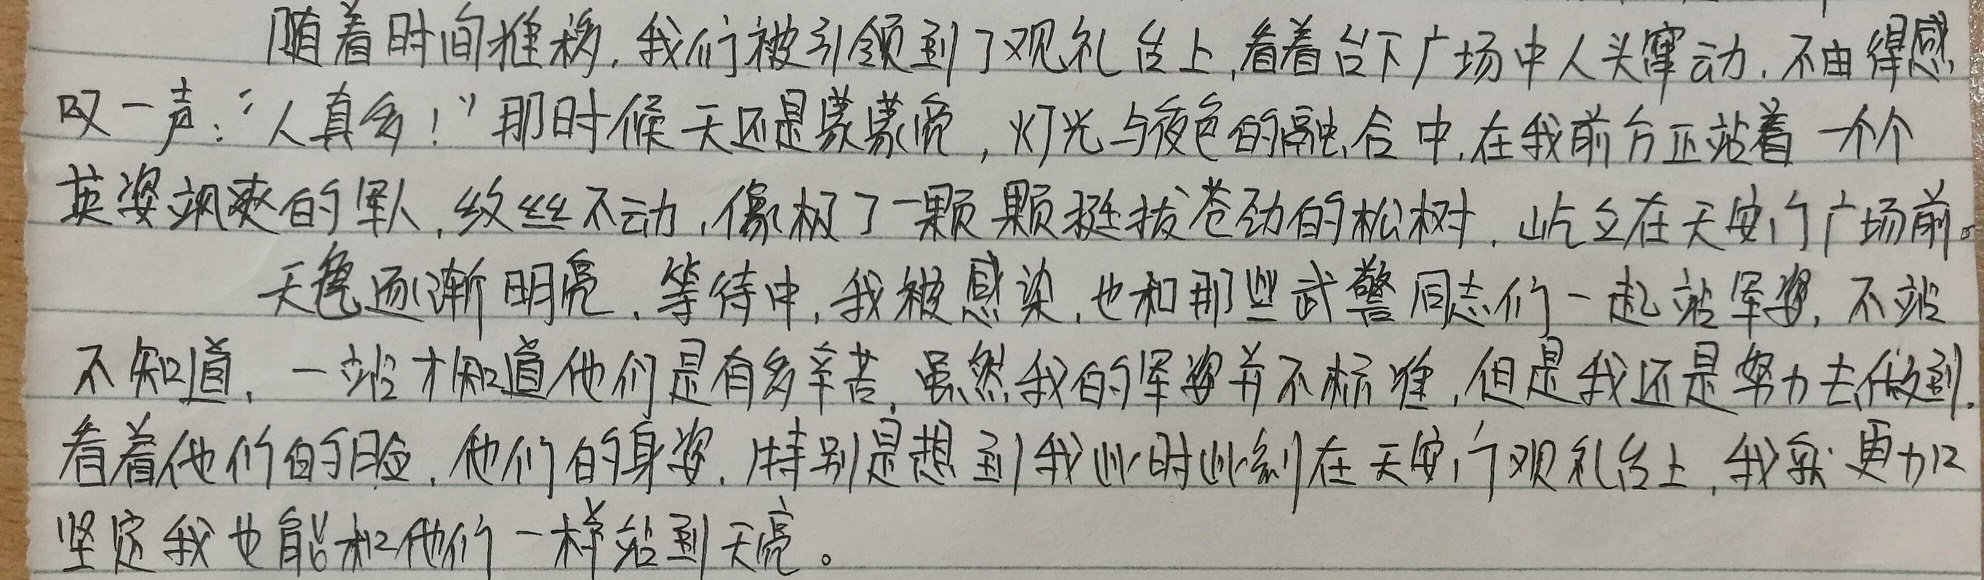 随着时间推移，我们被引领到了观礼台上，看着台下广场中人头窜动，不由得感
叹一声：“人真多！”那时候天还是蒙蒙亮，灯光与夜色的融合中，在我前方正站着一个个
英姿飒爽的军人，纹丝不动，像极了一颗颗挺拔苍劲的松树，屹立在天安门广场前。
天色逐渐明亮，等待中，我被感染，也和那些武警同志们一起站军姿，不站
不知道，一站才知道他们是有多辛苦，虽然我的军姿并不标准，但是我还是努力去做到，
看着他们的脸，他们的身姿，特别是想到我此时此刻在天安门观礼台上，我更加
坚定我也能和他们一样站到天亮。